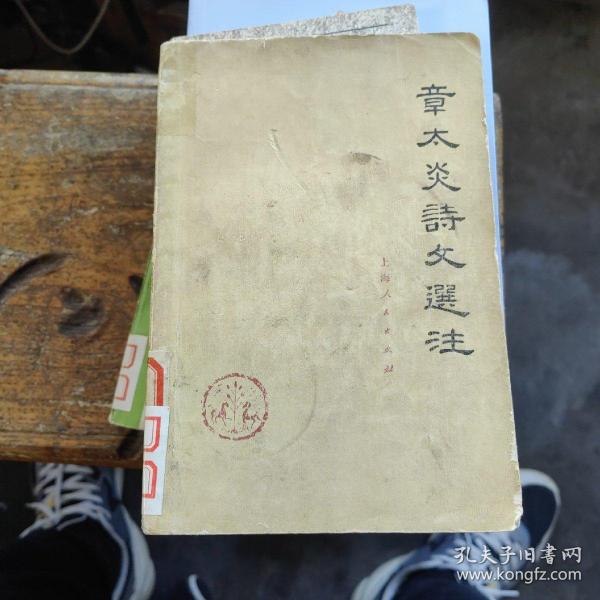 章太炎詩文選注
上海人民出版社
孔夫子旧书网
www.kongfz.com